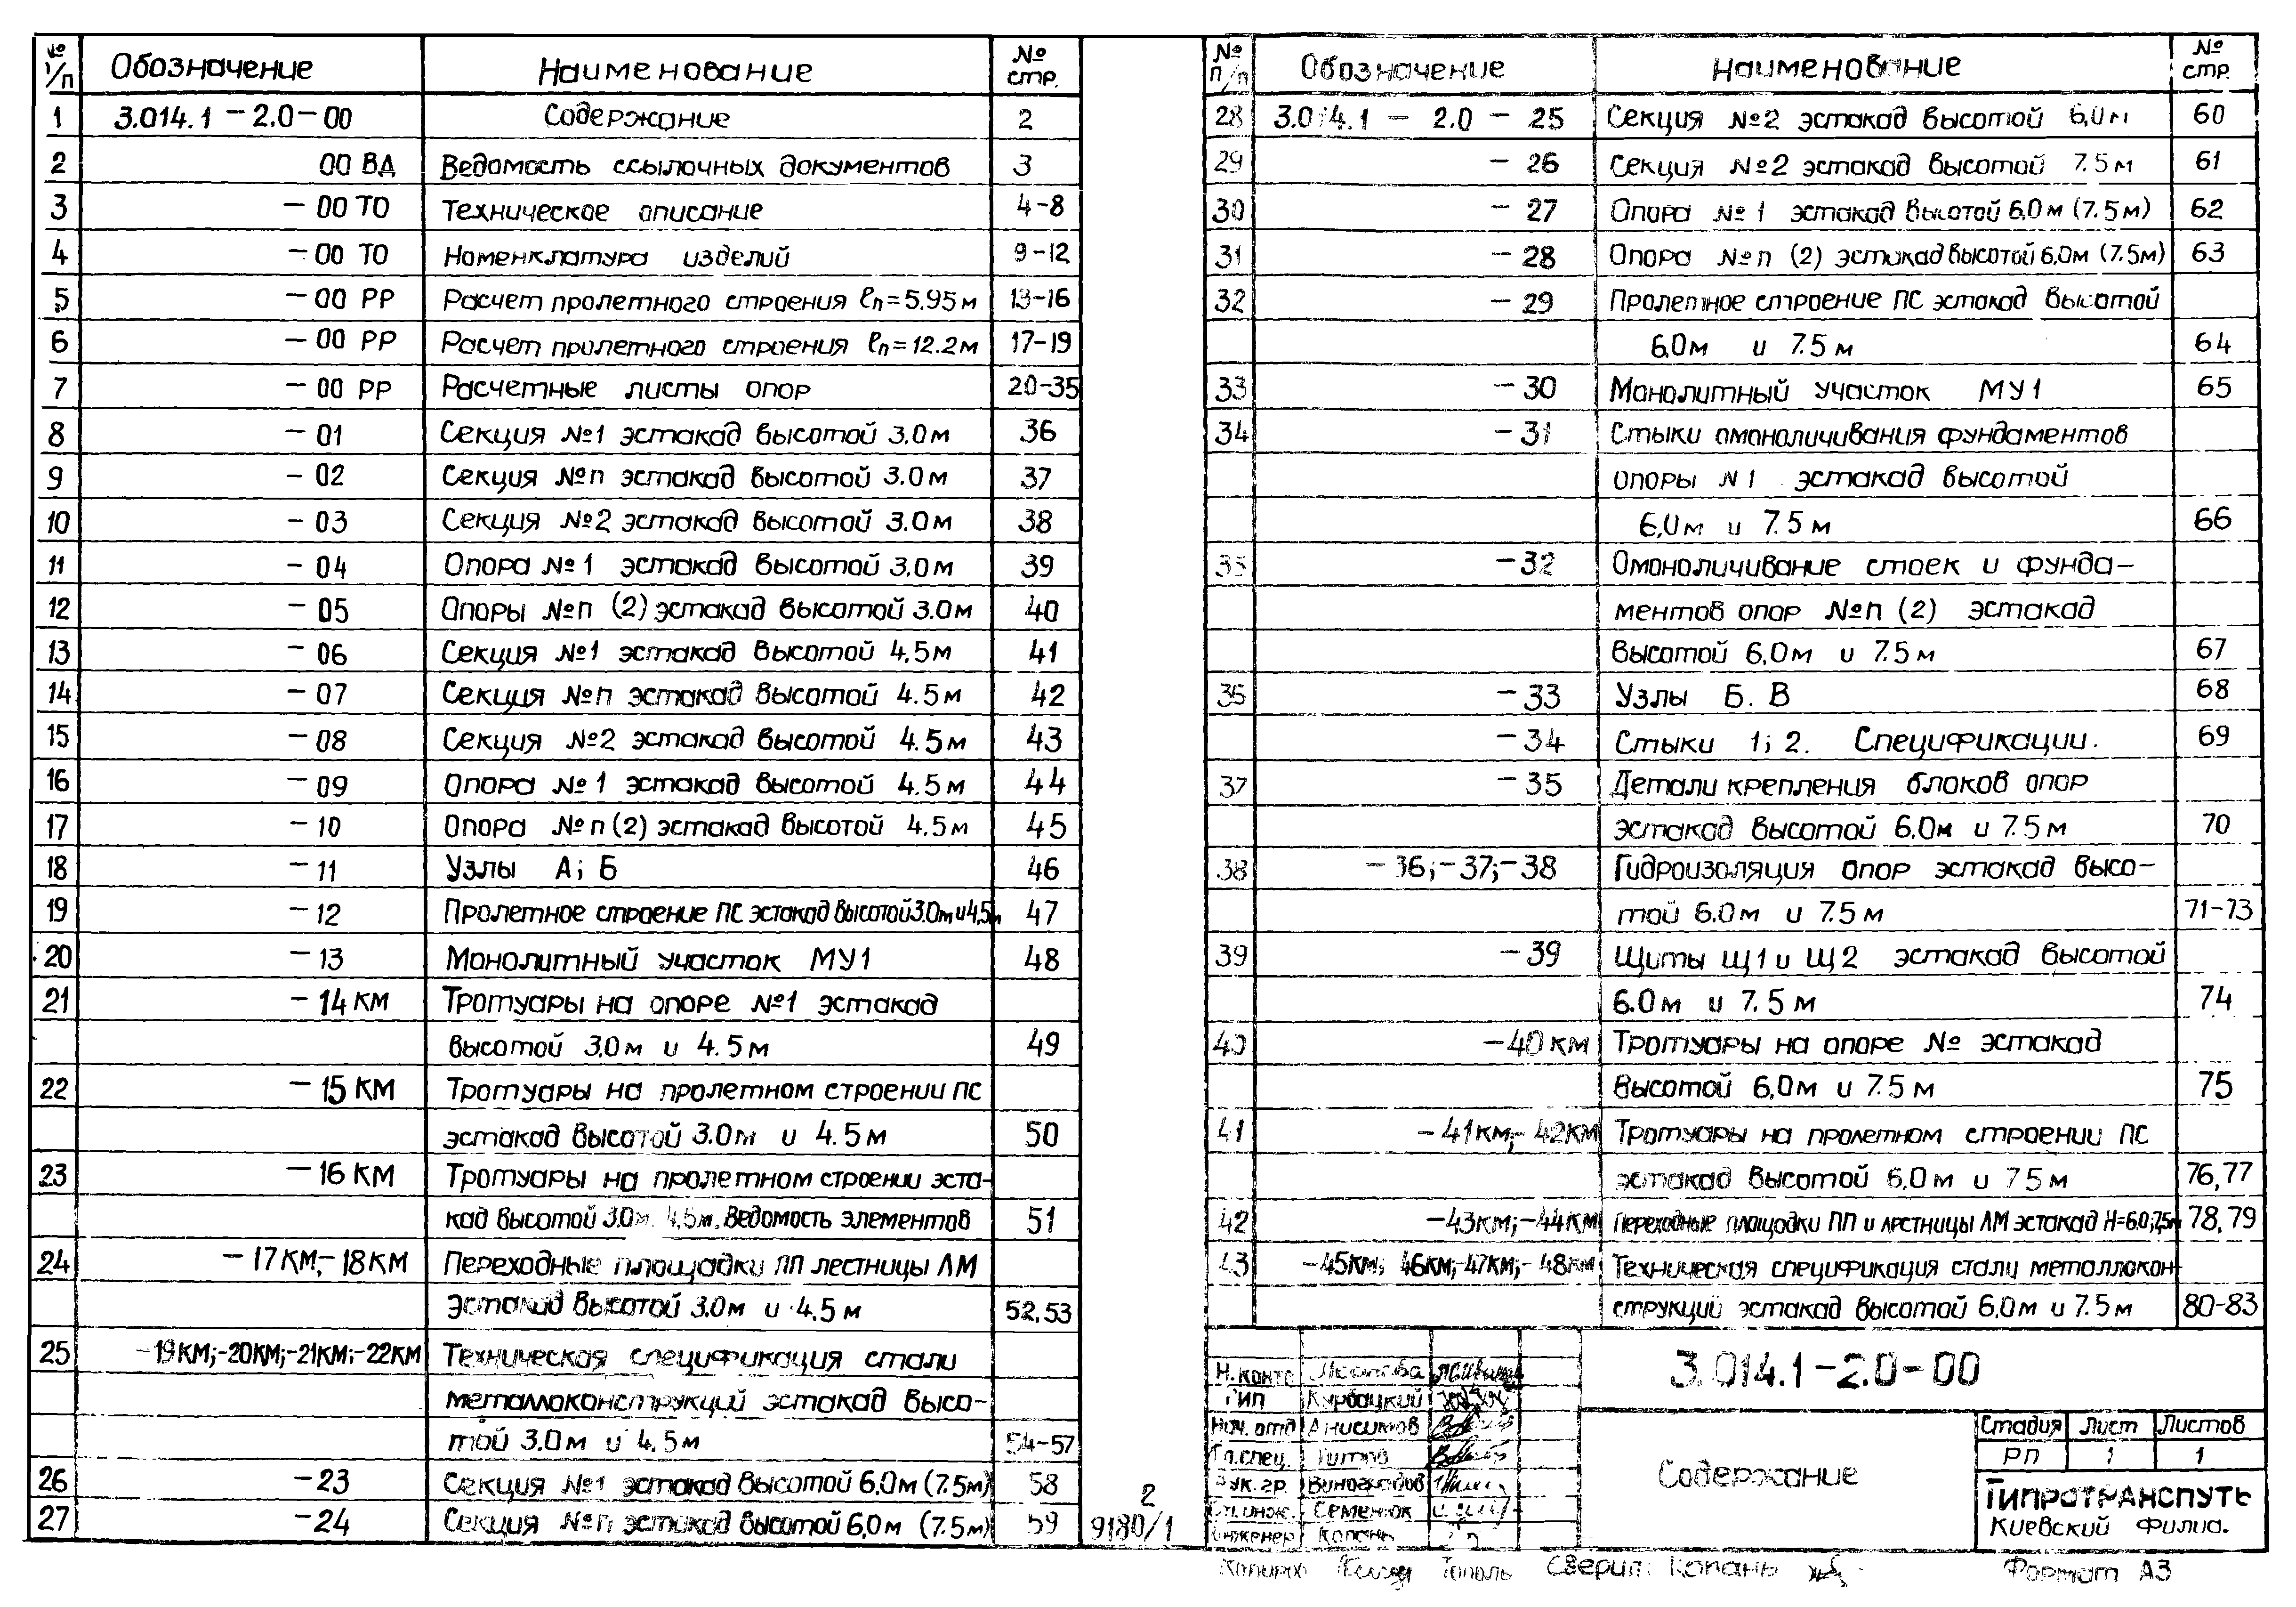 № п/п Обозначение Наименование № стр.
1 3.014.1-2.0-00 Содержание 2
2 00 ВД Ведомость ссылочных документов 3
3 -00 ТО Техническое описание 4-8
4 -00 ТО Номенклатура изделий 9-12
5 -00 РР Расчет пролетного строения ℓп=5.95м 13-16
6 -00 РР Расчет пролетного строения ℓп=12.2м 17-19
7 -00 РР Расчетные листы опор 20-35
8 -01 Секция №1 эстакад высотой 3.0м 36
9 -02 Секция №п эстакад высотой 3.0м 37
10 -03 Секция №2 эстакад высотой 3.0м 38
11 -04 Опора №1 эстакад высотой 3.0м 39
12 -05 Опоры №п (2) эстакад высотой 3.0м 40
13 -06 Секция №1 эстакад высотой 4.5м 41
14 -07 Секция №п эстакад высотой 4.5м 42
15 -08 Секция №2 эстакад высотой 4.5м 43
16 -09 Опора №1 эстакад высотой 4.5м 44
17 -10 Опора №п(2) эстакад высотой 4.5м 45
18 -11 Узлы А; Б 46
19 -12 Пролетное строение ПС эстакад высотой 3.0м и 4,5м 47
20 -13 Монолитный участок МУ1 48
21 -14 КМ Тротуары на опоре №1 эстакад
высотой 3.0м и 4.5м 49
22 -15 КМ Тротуары на пролетном строении ПС
эстакад высотой 3.0м и 4.5м 50
23 -16 КМ Тротуары на пролетном строении эста-
кад высотой 3.0м. 4.5м. Ведомость элементов 51
24 -17КМ;-18КМ Переходные площадки ПП лестницы ЛМ
эстакад высотой 3.0м и 4.5м 52,53
25 -19КМ;-20КМ;-21КМ;-22КМ Техническая спецификация стали
металлоконструкций эстакад высо-
той 3.0м и 4.5м 54-57
26 -23 Секция №1 эстакад высотой 6,0м (7.5м) 58
27 -24 Секция №п эстакад высотой 6,0м (7.5м) 59
2
9180/1
№ п/п Обозначение Наименование № стр.
28 3.014.1 - 2.0 - 25 Секция №2 эстакад высотой 6,0м 60
29 -26 Секция №2 эстакад высотой 7.5м 61
30 -27 Опора №1 эстакад высотой 6,0м (7.5м) 62
31 -28 Опора №п (2) эстакад высотой 6,0м (7.5м) 63
32 -29 Пролетное строение ПС эстакад высотой
6,0м и 7.5м 64
33 -30 Монолитный участок МУ1 65
34 -31 Стыки омоноличивания фундаментов
опоры №1 эстакад высотой
6,0м и 7.5м 66
35 -32 Омоноличивание стоек и фунда-
ментов опор №п (2) эстакад
высотой 6,0м и 7.5м 67
36 -33 Узлы Б. В 68
-34 Стыки 1; 2. Спецификации. 69
37 -35 Детали крепления блоков опор
эстакад высотой 6.0м и 7.5м 70
38 -36;-37;-38 Гидроизоляция опор эстакад высо-
той 6.0м и 7.5м 71-73
39 -39 Щиты Щ1 и Щ2 эстакад высотой
6.0м и 7.5м 74
40 -40 КМ Тротуары на опоре № эстакад
высотой 6,0м и 7.5м 75
41 -41КМ;-42КМ Тротуары на пролетном строении ПС
эстакад высотой 6,0м и 7.5м 76,77
42 -43КМ;-44КМ Переходные площадки ПП и лестницы ЛМ эстакад Н=6.0;7,5м 78,79
43 -45КМ; 46КМ;-47КМ;-48КМ Техническая спецификация стали металлокон-
струкций эстакад высотой 6.0м и 7.5м 80-83
3.014.1-2.0-00
Н.контр
ГИП Курбацкий
Нач. отд Анисимов
Гл.спец. Титов
Рук.гр. Виноградов
Ст.инж. Семенюк
Инженер Копань
Содержание
Стадия Лист Листов
РП 1 1
ГИПРОТРАНСПУТЬ
Киевский Филиа.
Тополь Сверил: Копань Формат А3